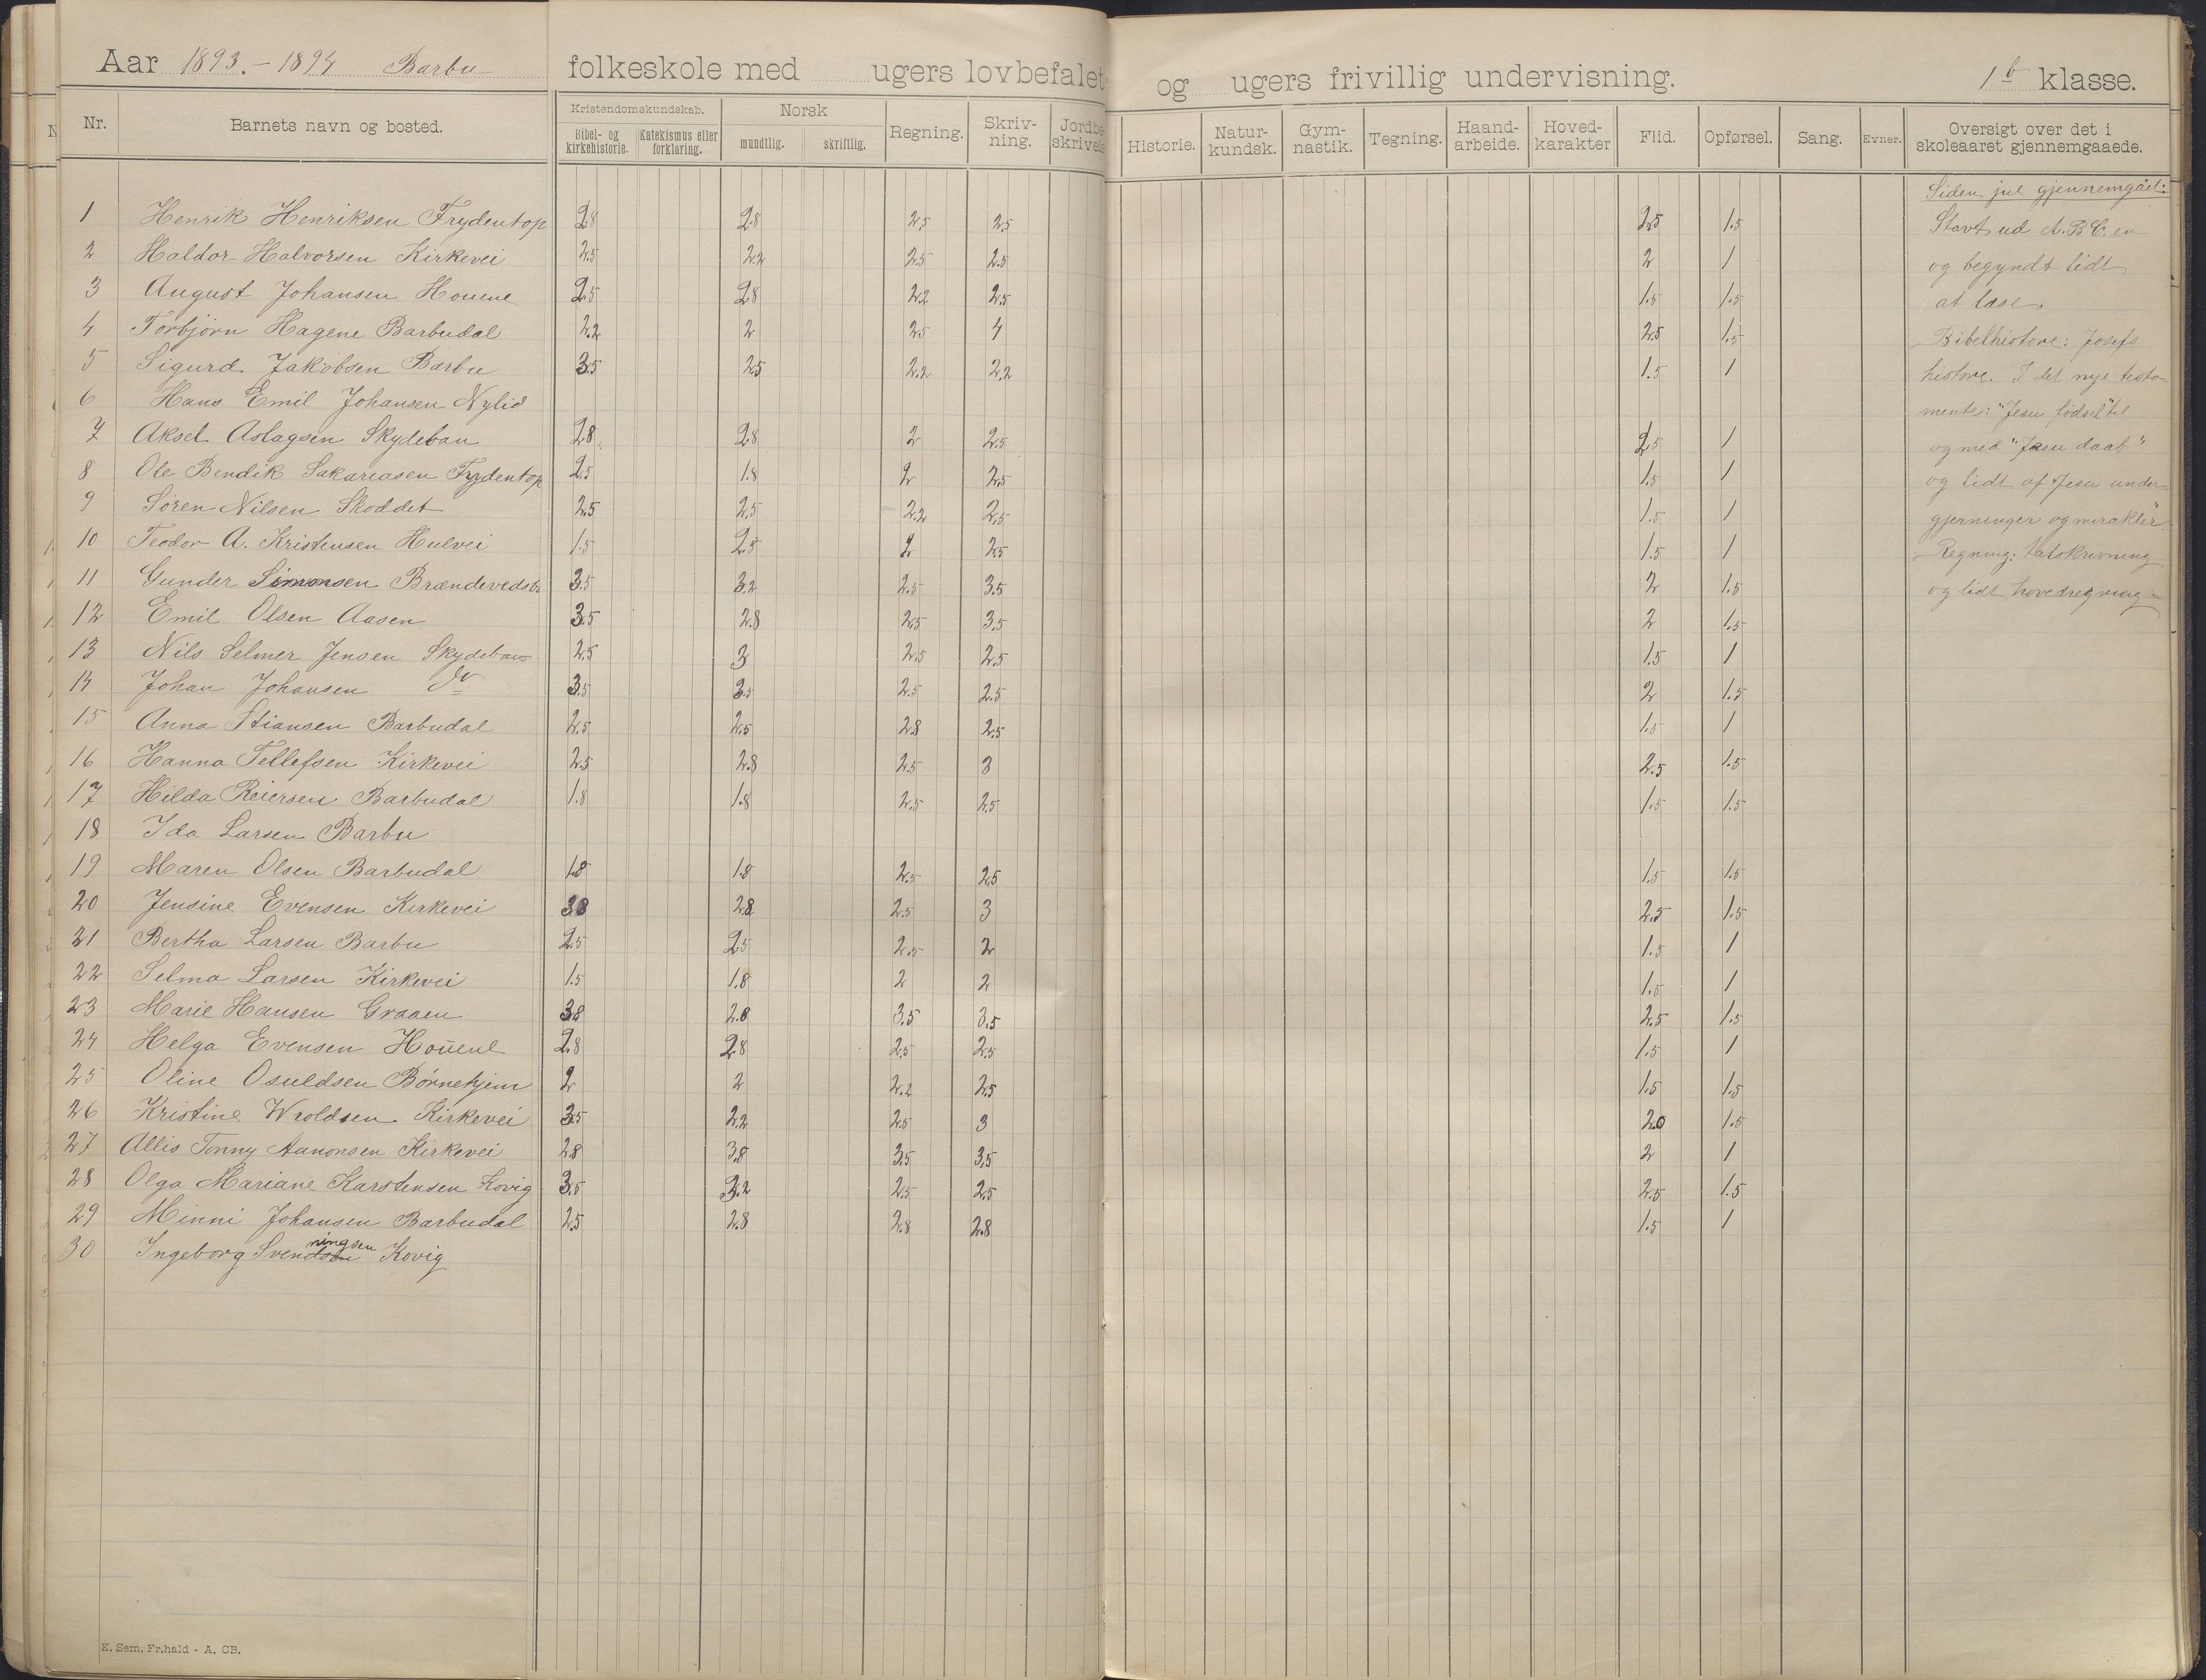 Aar 1893. - 1894 Barbu folkeskole med ugers lovbefalet og ugers frivillig undervisning. 1b klasse.
Nr. Barnets navn og bosted. Kristendomskundskab. Bibel- og kirkehistorie. Katekismus eller forklaring. Norsk mundtlig. skriftlig. Regning. Skriv-ning. Jordbe skrivels Historie. Natur-kundsk. Gym-nastik. Tegning. Haand-arbeide. Hoved-karakter Flid. Opførsel. Sang. Evner. Oversigt over det i skoleaaret gjennemgaaede.
1 Henrik Henriksen Frydentop 2.8 2.8 2.5 2.5 2.5 1.5
2 Haldor Halvorsen Kirkevei 2.5 2.2 2.5 2.5 2 1
3 August Johansen Houene 2.5 2.8 2.2 2.5 1.5 1.5
4 Torbjörn Hagene Barbudal 2.2 2 2.5 4 2.5 1.5
5 Sigurd Jakobsen Barbu 3.5 2.5 2.2 2.2 1.5 1
6 Hans Emil Johansen Nylid
7 Aksel Aslagsen Skydeban 2.8 2.8 2 2.5 2.5 1
8 Ole Bendik Sakariasen Frydentop 2.5 1.8 2 2.5 1.5 1
9 Søren Nilsen Skoddet 2.5 2.5 2.2 2.5 1.5 1
10 Teodor A. Kristensen Hulvei 1.5 2.5 2 2.5 1.5 1
11 Gunder Simonsen Brændevedsb. 3.5 3.2 2.5 3.5 2 1.5
12 Emil Olsen Aasen 3.5 2.8 2.5 3.5 2 1.5
13 Nils Selmer Jensen Skydeban 2.5 3 2.5 2.5 1.5 1
14 Johan Johansen do 3.5 3.5 2.5 2.5 2 1.5
15 Anna Stiansen Barbudal 2.5 2.5 2.8 2.5 1.5 1
16 Hanna Tellefsen Kirkevei 2.5 2.8 2.5 3 2.5 1.5
17 Hilda Reiersen Barbudal 1.8 1.8 2.5 2.5 1.5 1.5
18 Ida Larsen Barbu
19 Maren Olsen Barbudal 1.8 1.8 2.5 2.5 1.5 1.5
20 Jensine Evensen Kirkevei 3.8 2.8 2.5 3 2.5 1.5
21 Bertha Larsen Barbu 2.5 2.5 2.5 2 1.5 1
22 Selma Larsen Kirkevei 1.5 1.8 2 2 1.5 1
23 Marie Hansen Graaen 3.8 2.8 3.5 3.5 2.5 1.5
24 Helga Evensen Houene 2.8 2.8 2.5 2.5 1.5 1
25 Oline Osuldsen Børnehjem 2 2 2.2 2.5 1.5 1.5
26 Kristine Wroldsen Kirkevei 3.5 2.2 2.5 3 2.0 1.5
27 Allis Tonny Aanonsen Kirkevei 2.8 3.8 3.5 3.5 2 1
28 Olga Mariane Karstensen Kovig 3.5 3.2 2.5 2.5 2.5 1.5
29 Minni Johansen Barbudal 2.5 2.8 2.8 2.8 1.5 1
30 Ingeborg Svenningsen Kovig
Siden jul gjennemgået:
Stavt ud A.B.C.en
og begyndt lidt
at læse.
Bibelhistorie: Josefs
historie. I det nye testa-
mente: "Jesu fødsel" til
og med "Jesu daab"
og lidt af Jesu under-
gjerninger og mirakler"
Regning: talskrivning
og lidt hovedregning
E. Sem, Fr.hald - A. CB.